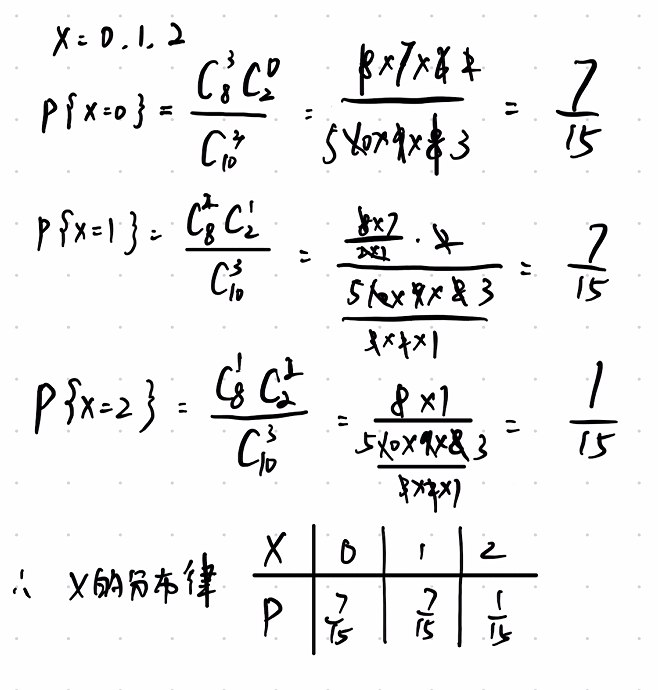 X = 0, 1, 2
P{X=0} = C₈³C₂⁰ / C₁₀³ = 8×7×6 / 10×9×8 = 7/15
P{X=1} = C₈²C₂¹ / C₁₀³ = (8×7 / 2×1 · 2) / (10×9×8 / 3×2×1) = 7/15
P{X=2} = C₈¹C₂² / C₁₀³ = 8×1 / (10×9×8 / 3×2×1) = 1/15
∴ X的分布律 X 0 1 2
P 7/15 7/15 1/15